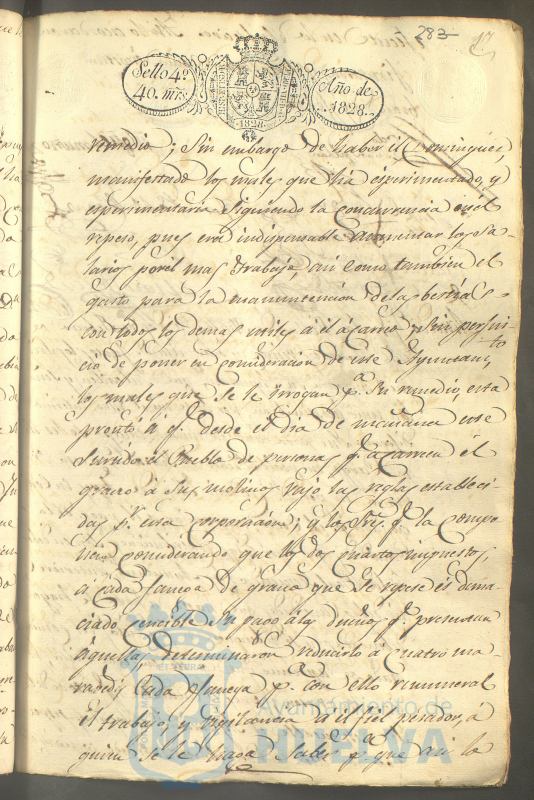 283
17
Sello 4º
40. mrs.
Año de
1828.
HISPANIARUM
1828
remedio; Sin embargo de haber el Dominguez,
manifestado los males que ha esperimentado, y
esperimentaria siguiendo la concurrencia en el
repeso, pues era indispensable aumentar los sa-
larios por el mas trabajo asi como tambien el
gasto para la manutencion de las bestias
con todos los demas utiles á el ácarreo, y Sin perjui-
cio de poner en consideracion de este Ayuntamto.
los males que se le irrogan pa. su remedio, está
pronto á qe. desde el dia de mañana este
Surtido el Pueblo de personas qe. ácarreen él
grano á sus molinos vajo las reglas estableci-
das pr. esta corporacion; y los Sres. qe. la compo-
nen considerando que los dos quartos impuestos,
á cada fanega de grano que se repese és dema-
ciado sencible su pago á los dueños qe. presentan
áquellas determinaron reducirlo á cuatro ma-
ravedis cada fanega pa. con ello remunerar
él trabajo, y vigilancia á él fiel pesador, á
quien se le haga saber pa. que asi lo
Ayuntamiento de
HUELVA